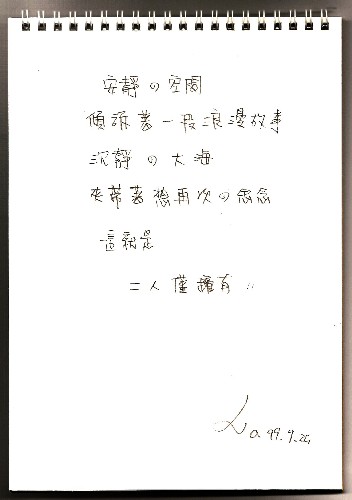 安靜の空間
傾訴著一段浪漫故事
沉靜の大海
夾帶著想再次の思念
這就是
二人僅擁有"
99.9.24